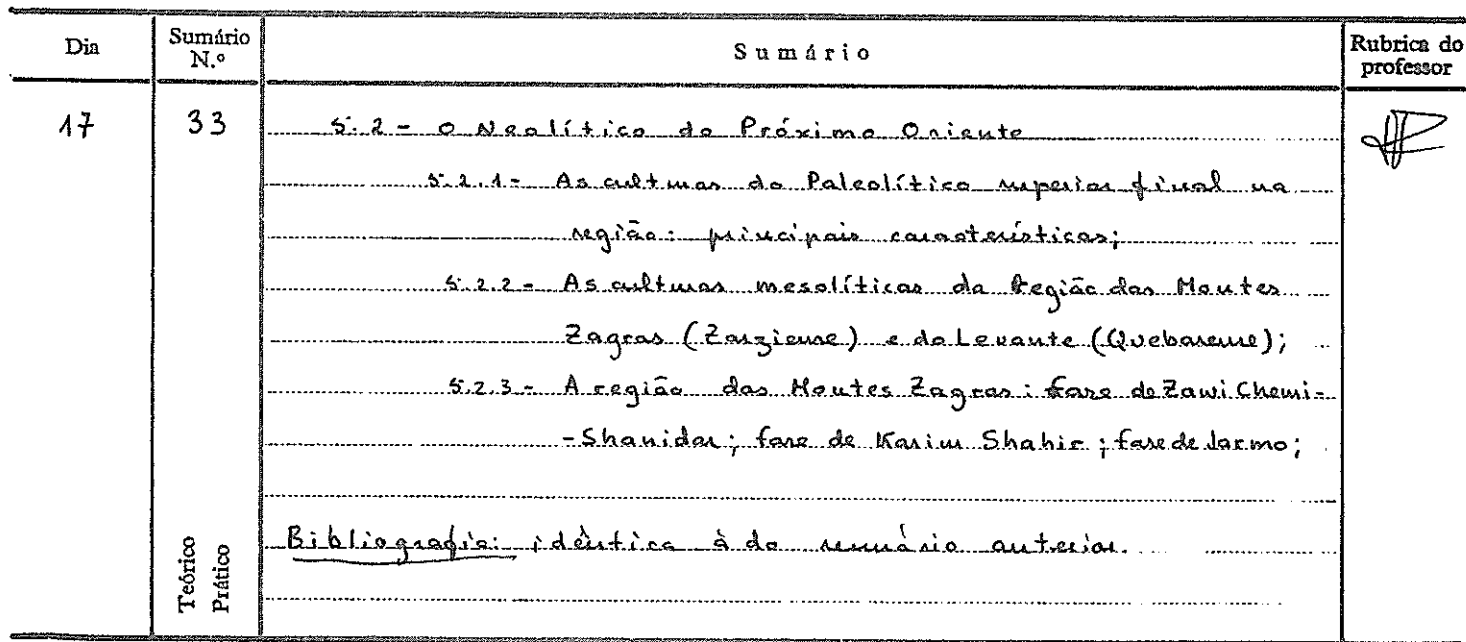 Dia
Sumário N.º
Sumário
Rubrica do professor
17
33
5.2 - O Neolítico do Próximo Oriente
5.2.1 - As culturas do Paleolítico superior final na
região: principais características;
5.2.2 - As culturas mesolíticas da Região dos Montes
Zagros (Zarziense) e do Levante (Quebarense);
5.2.3 - A região dos Montes Zagros: fase de Zawi Chemi-
-Shanidar; fase de Karim Shahir; fase de Jarmo;
Bibliografia: idêntica à do sumário anterior.
Teórico
Prático